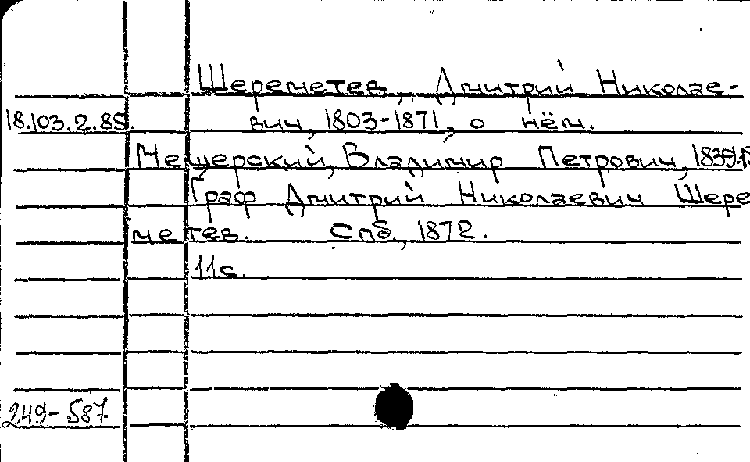 Шереметев, Дмитрий Николае-
18.103.2.85. вич, 1803-1871, о нём.
Мещерский, Владимир Петрович,
Граф Дмитрий Николаевич Шере
метев. Спб, 1872.
11с.
249-587